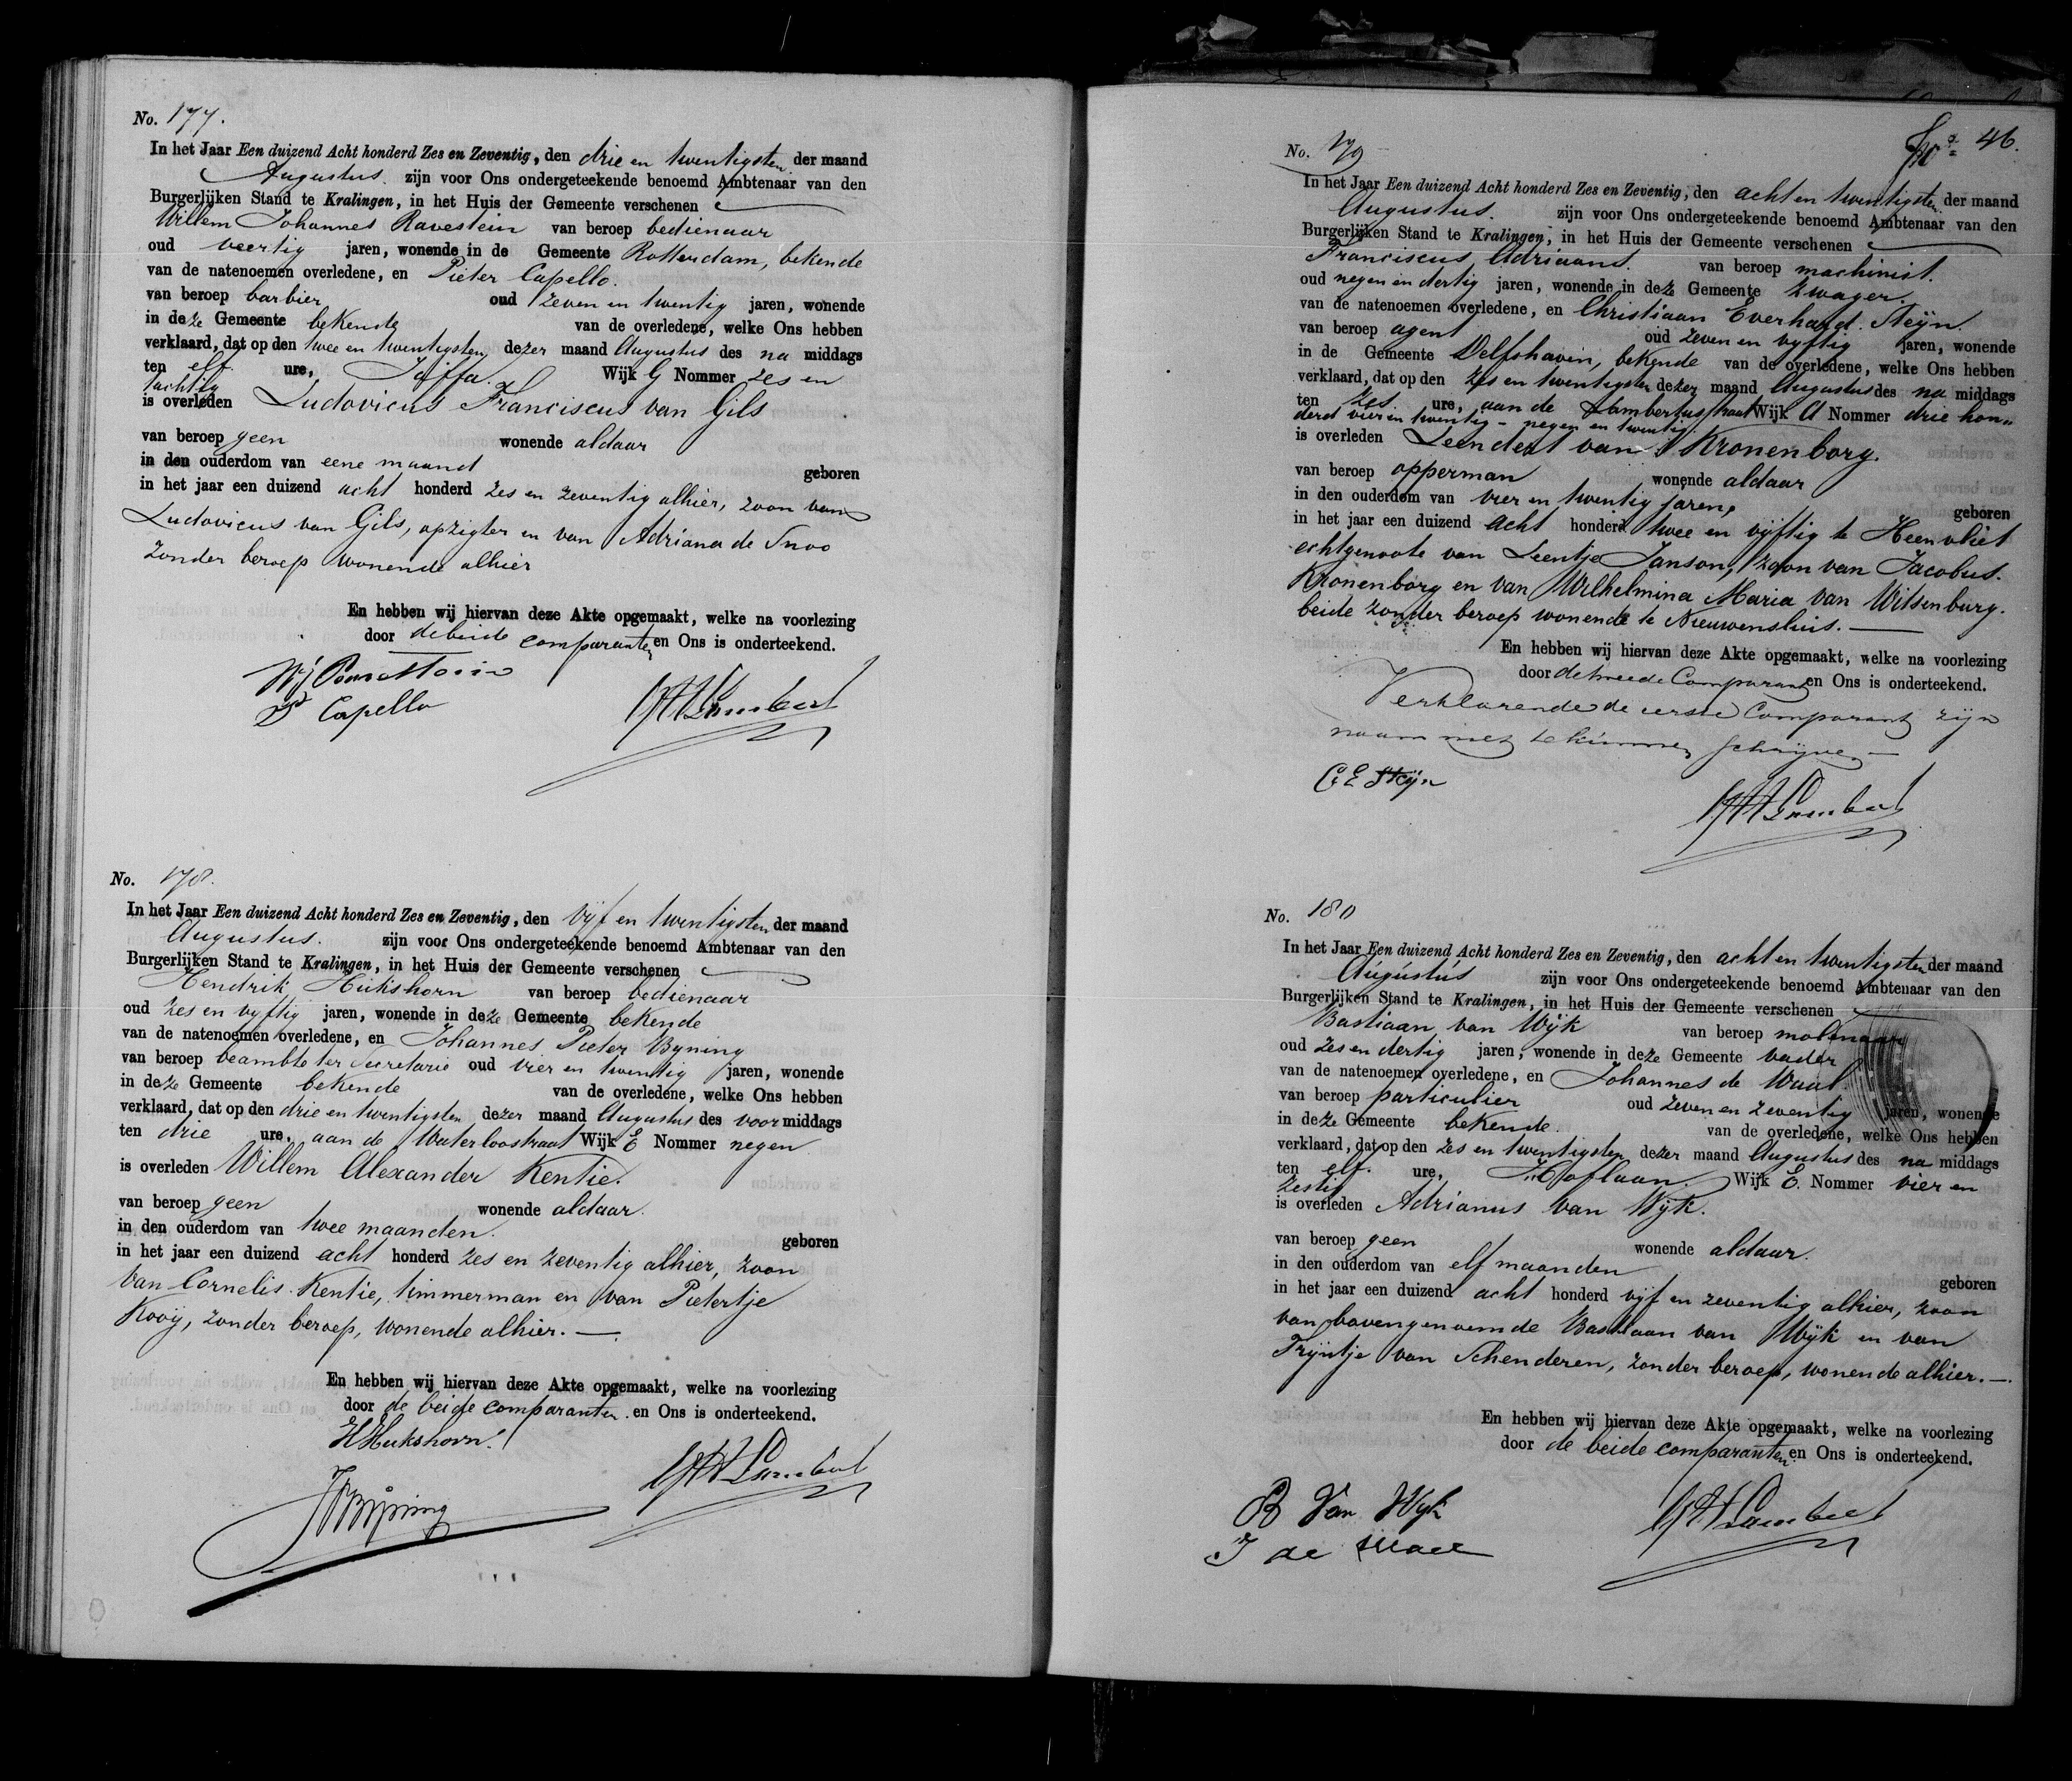 No. 177.
In het Jaar Een duizend Acht honderd Zes en Zeventig, den drie en twintigsten der maand
Augustus. zijn voor Ons ondergeteekende benoemd Ambtenaar van den
Burgerlijken Stand te Kralingen, in het Huis der Gemeente verschenen
Willem Johannes Ravestein van beroep bedienaar
oud veertig jaren, wonende in de Gemeente Rotterdam, bekende
van de natenoemen overledene, en Pieter Capello.
van beroep barbier oud zeven en twintig jaren, wonende
in deze Gemeente bekende van de overledene, welke Ons hebben
verklaard, dat op den twee en twintigsten dezer maand Augustus des na middags
ten elf. ure, Jaffa. Wijk G Nommer zes en
tachtig
is overleden Ludovicus Franciscus van Gils
van beroep geen wonende aldaar
in den ouderdom van eene maand geboren
in het jaar een duizend acht honderd zes en zeventig alhier, zoon van
Ludovicus van Gils, opzigter en van Adriana de Snoo
zonder beroep wonende alhier
En hebben wij hiervan deze Akte opgemaakt, welke na voorlezing
door de beide comparanten en Ons is onderteekend.
P Capello
Lambert
No. 178.
In het Jaar Een duizend Acht honderd Zes en Zeventig, den vijf en twintigsten der maand
Augustus. zijn voor Ons ondergeteekende benoemd Ambtenaar van den
Burgerlijken Stand te Kralingen, in het Huis der Gemeente verschenen
Hendrik Heukshorn van beroep bedienaar
oud zes en vyftig jaren, wonende in deze Gemeente bekende
van de natenoemen overledene, en Johannes Pieter Byning
van beroep beambte ter Secretarie oud vier en twintig jaren, wonende
in deze Gemeente bekende van de overledene, welke Ons hebben
verklaard, dat op den drie en twintigsten dezer maand Augustus des voormiddags
ten drie ure, aan de Waterloostraat Wijk E Nommer negen
is overleden Willem Alexander Kentie.
van beroep geen wonende aldaar.
in den ouderdom van twee maanden. geboren
in het jaar een duizend acht honderd zes en zeventig alhier, zoon
van Cornelis Kentie, timmerman en van Pietertje
Kooij, zonder beroep, wonende alhier. —
En hebben wij hiervan deze Akte opgemaakt, welke na voorlezing
door de beide comparanten en Ons is onderteekend.
H Heukshorn.
Lambert
JP Byning
Fo 46.
No. 179
In het Jaar Een duizend Acht honderd Zes en Zeventig, den acht en twintigsten der maand
Augustus. zijn voor Ons ondergeteekende benoemd Ambtenaar van den
Burgerlijken Stand te Kralingen, in het Huis der Gemeente verschenen
Franciscus Adriaans. van beroep machinist.
oud negen en dertig jaren, wonende in deze Gemeente zwager.
van de natenoemen overledene, en Christiaan Everhard Steijn.
van beroep agent oud zeven en vyftig jaren, wonende
in de Gemeente Delfshaven, bekende van de overledene, welke Ons hebben
verklaard, dat op den zes en twintigsten dezer maand Augustus des na middags
ten zes ure, aan de Lambertusstraat Wijk A Nommer drie hon„
derd vier en twintig - negen en twintig.
is overleden Leendert van Kronenborg.
van beroep opperman wonende aldaar
in den ouderdom van vier en twintig jaren, geboren
in het jaar een duizend acht honderd twee en vijftig te Heenvliet
echtgenoote van Leentje Janson, zoon van Jacobus.
Kronenborg en van Wilhelmina Maria van Witsenburg.
beide zonder beroep wonende te Nieuwensluis. —
En hebben wij hiervan deze Akte opgemaakt, welke na voorlezing
door de tweede Comparant en Ons is onderteekend.
Verklarende de eerste Comparant zijn
naam niet te kunnen schrijven —
C E Steijn
Lambert
No. 180
In het Jaar Een duizend Acht honderd Zes en Zeventig, den acht en twintigsten der maand
Augustus zijn voor Ons ondergeteekende benoemd Ambtenaar van den
Burgerlijken Stand te Kralingen, in het Huis der Gemeente verschenen
Bastiaan van Wijk van beroep molenaar
oud zes en dertig jaren, wonende in deze Gemeente vader
van de natenoemen overledene, en Johannes de Waal.
van beroep particulier oud zeven en zeventig jaren, wonende
in deze Gemeente bekende. van de overledene, welke Ons hebben
verklaard, dat op den zes en twintigsten dezer maand Augustus des na middags
ten elf. ure, Hoflaan. Wijk E. Nommer vier en
zestig
is overleden Adrianus van Wijk.
van beroep geen wonende aldaar.
in den ouderdom van elf maanden geboren
in het jaar een duizend acht honderd vijf en zeventig alhier, zoon
van bovengenoemde Bastiaan van Wijk en van
Trijntje van Schenderen, zonder beroep, wonende alhier. —
En hebben wij hiervan deze Akte opgemaakt, welke na voorlezing
door de beide comparanten en Ons is onderteekend.
B Van Wijk
Lambert
J de Waal